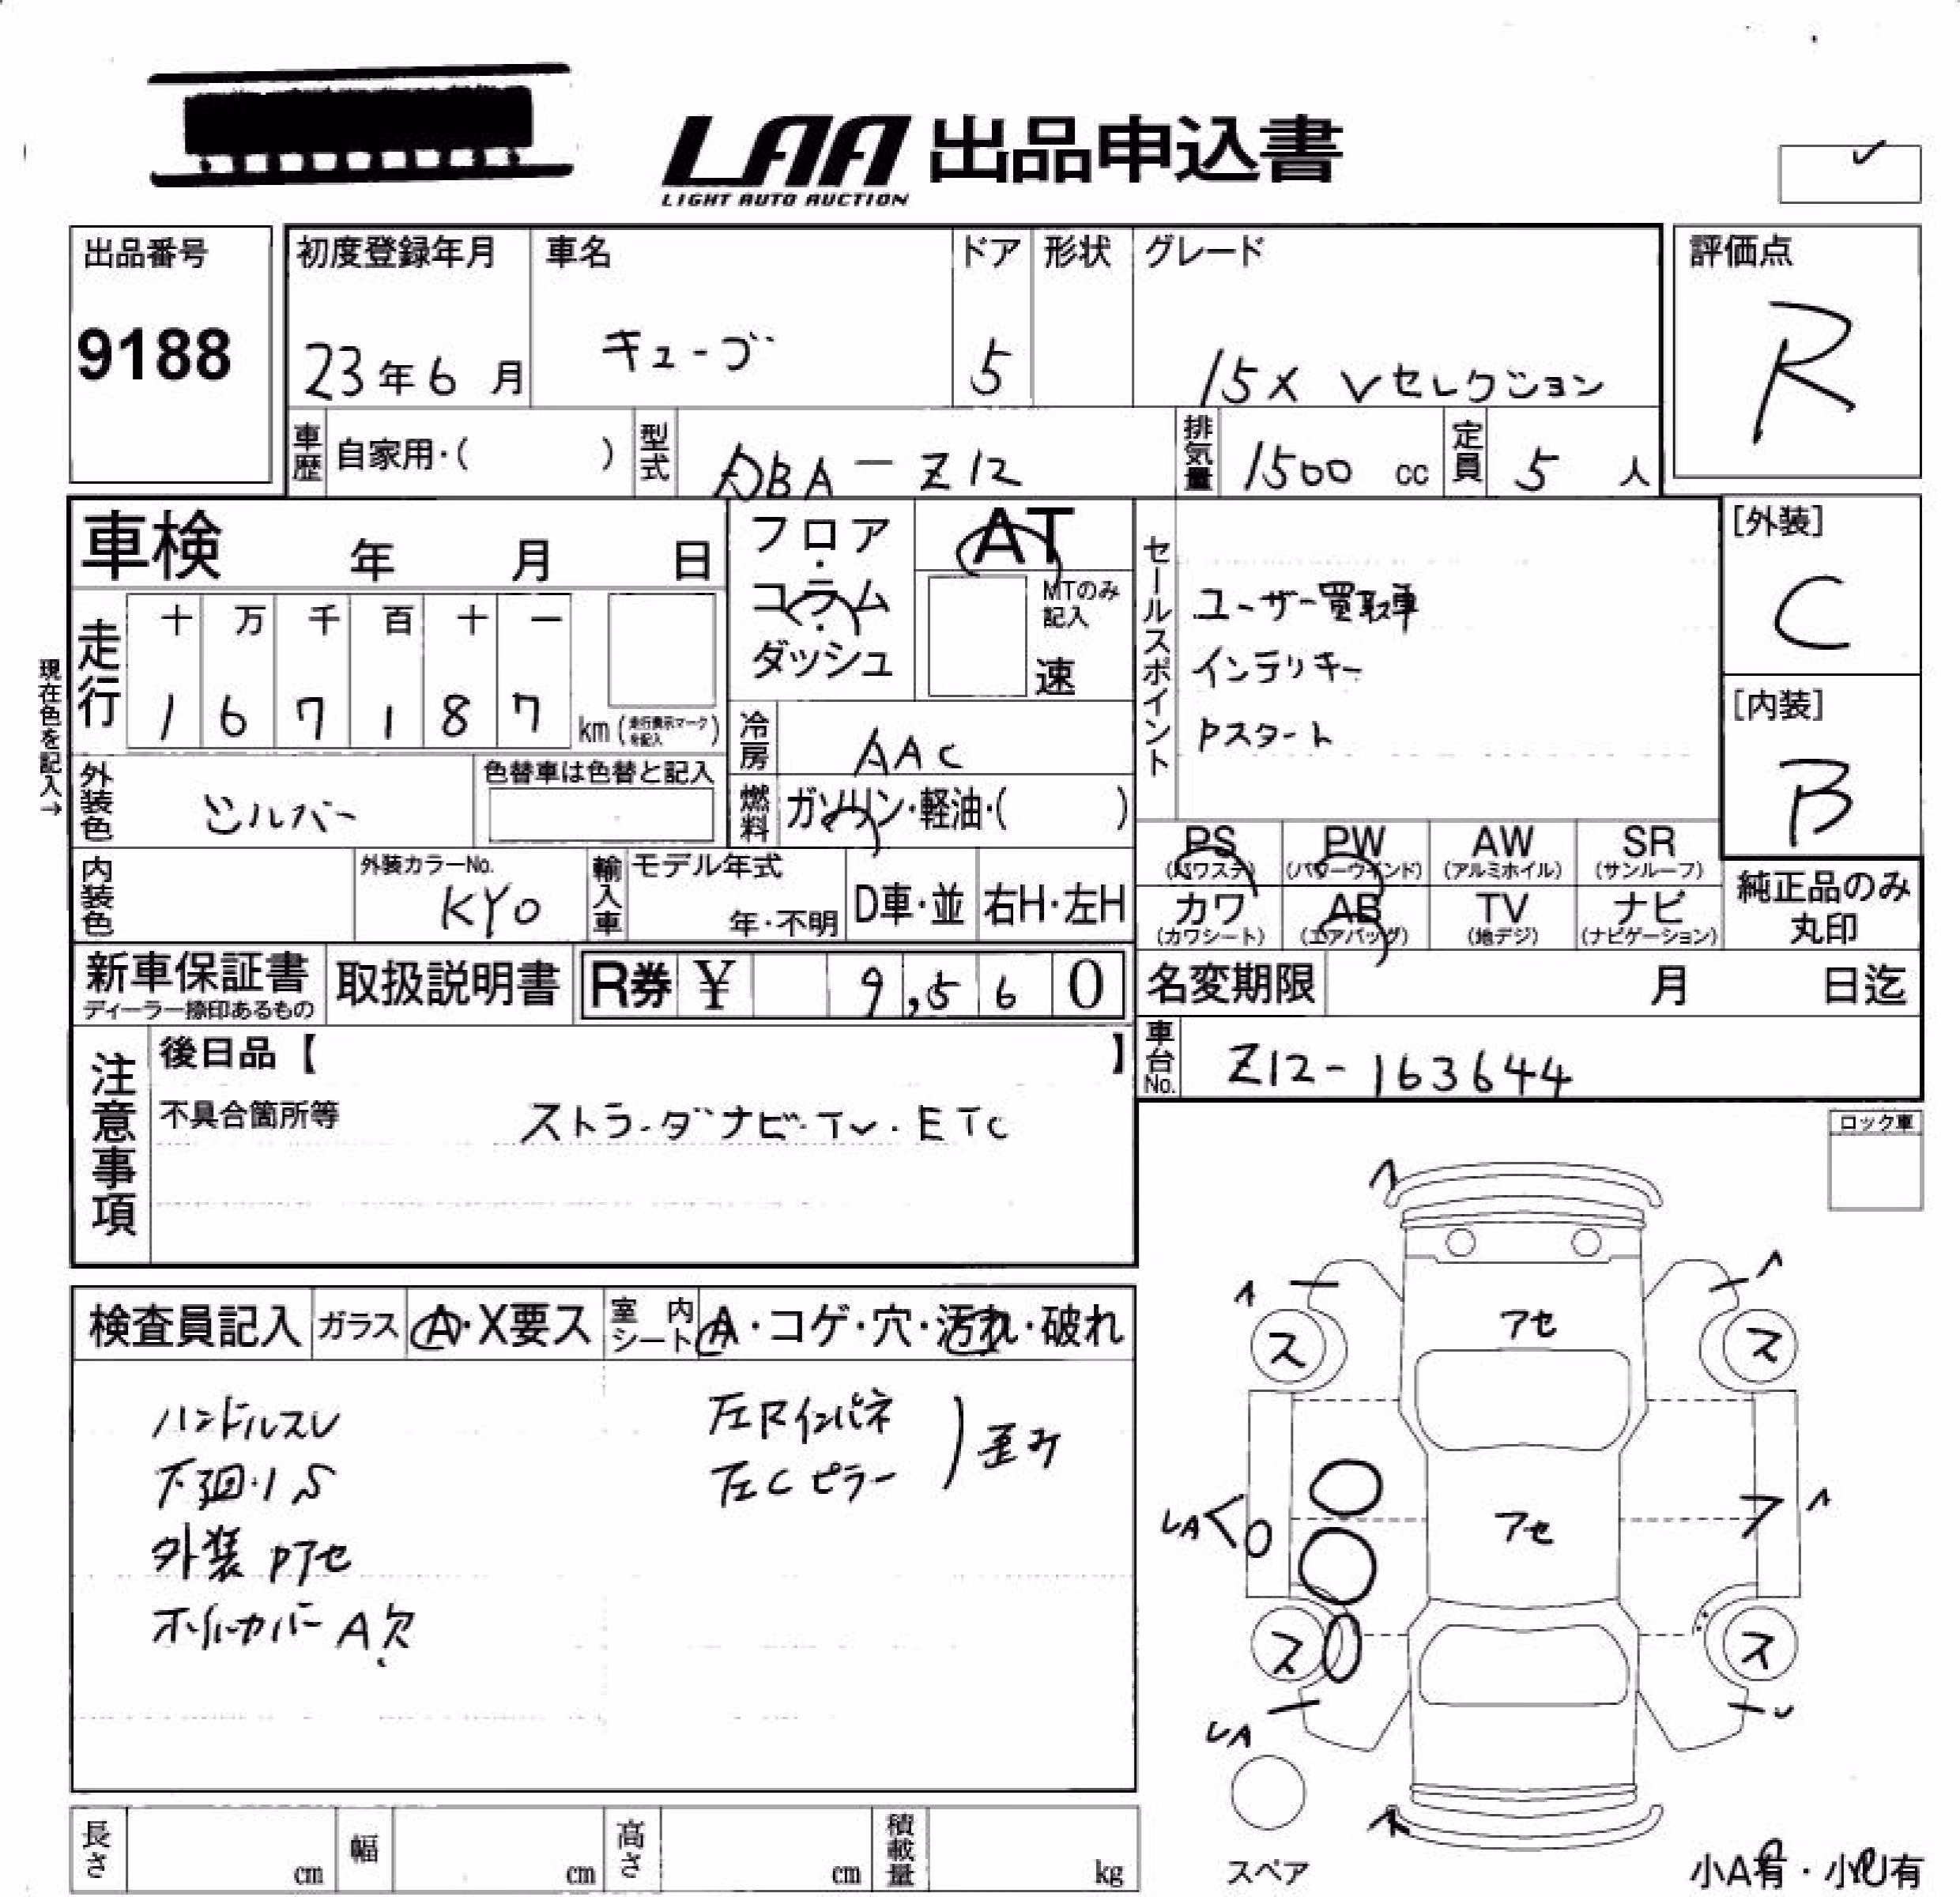 LAA 出品申込書
LIGHT AUTO AUCTION
出品番号
9188
初度登録年月
23年6月
車名
キューブ
ドア
5
形状
グレード
15X Vセレクション
評価点
R
車歴 自家用・( )
型式 DBA-Z12
排気量 1500 cc
定員 5 人
車検 年 月 日
フロア・コラム・ダッシュ
AT
MTのみ記入
速
セールスポイント
ユーザー買取車
インテリキー
Pスタート
[外装]
C
[内装]
B
現在色を記入→
走行
十 万 千 百 十 一
1 6 7 1 8 7 km (走行表示マークを記入)
冷房 AAC
外装色 シルバー
色替車は色替と記入
燃料 ガソリン・軽油・( )
PS (パワステ) PW (パワーウインド) AW (アルミホイル) SR (サンルーフ)
カワ (カワシート) AB (エアバッグ) TV (地デジ) ナビ (ナビゲーション)
純正品のみ丸印
内装色
外装カラーNo.
KY0
輸入車
モデル年式
年・不明
D車・並
右H・左H
新車保証書
ディーラー捺印あるもの
取扱説明書
R券 ¥ 9,560
名変期限 月 日迄
車台No. Z12-163644
注意事項
後日品【 】
不具合箇所等
ストラーダナビ・TV・ETC
ロック車
検査員記入 ガラス A・X要ス 室内シート A・コゲ・穴・汚れ・破れ
ハンドルスレ
下廻・1 S
外装 Pアセ
ホイルカバー A欠
左Rインパネ
左Cピラー
歪み
アセ
ス ス
アセ
LA
ス ス
LA
スペア
小A有・小U有
長さ cm 幅 cm 高さ cm 積載量 kg